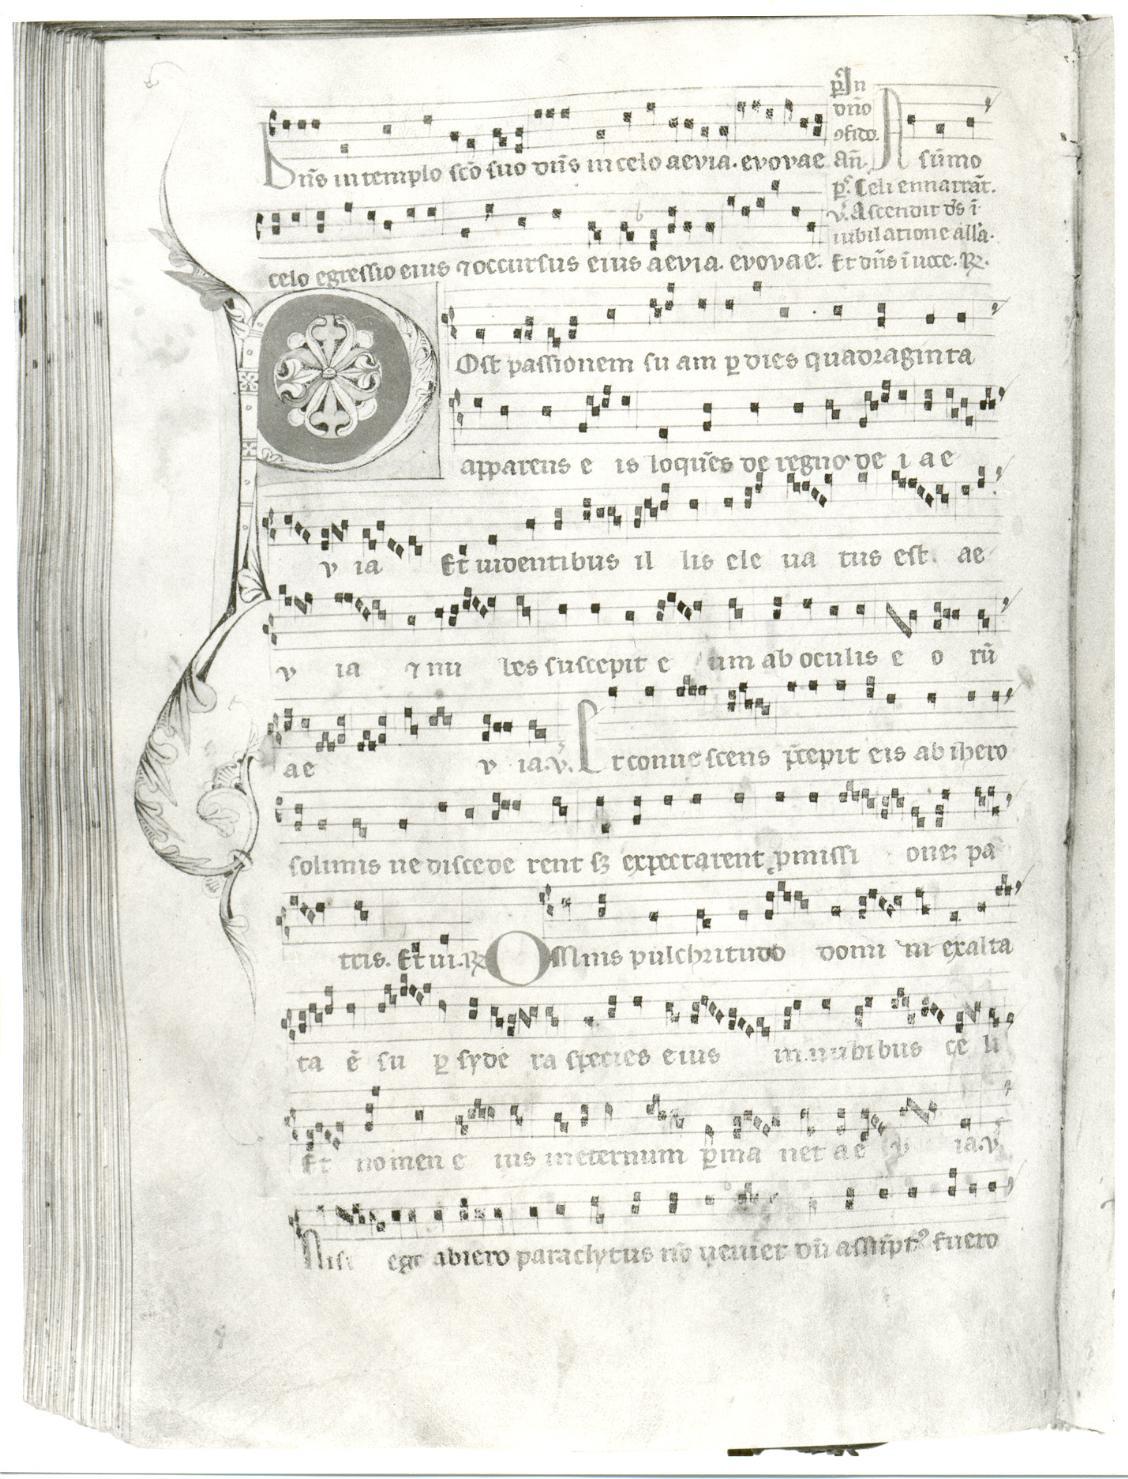 Dñs in templo sc̄o suo dñs in celo aevia. evovae. ps. In dño ɔfido. añ. A sūmo
celo egressio eius ⁊ occursus eius aevia. evovae. ps. Celi ennarrāt. v. Ascendit ds ī iubilatione all'a. Et dñs ī uoce. R.
Ost passionem su am p dies quadraginta
apparens e is loquēs de regno de i ae
v ia Et uidentibus il lis ele ua tus est. ae
v ia ⁊ nu bes suscepit e um ab oculis e o rū
ae v ia. v. Et conue scens p̄cepit eis ab ihero
solimis ne discede rent sꝫ expectarent pmissi oneꝫ pa
tris. Et ui. R Omnis pulchritudo domi ni exalta
ta ē su p syde ra species eius in nubibus ce li
Et nomen e ius in eternum p̄ma net ae v ia. v.
Nisi ego abiero paraclytus nō ueniet dū assūptꝰ fuero